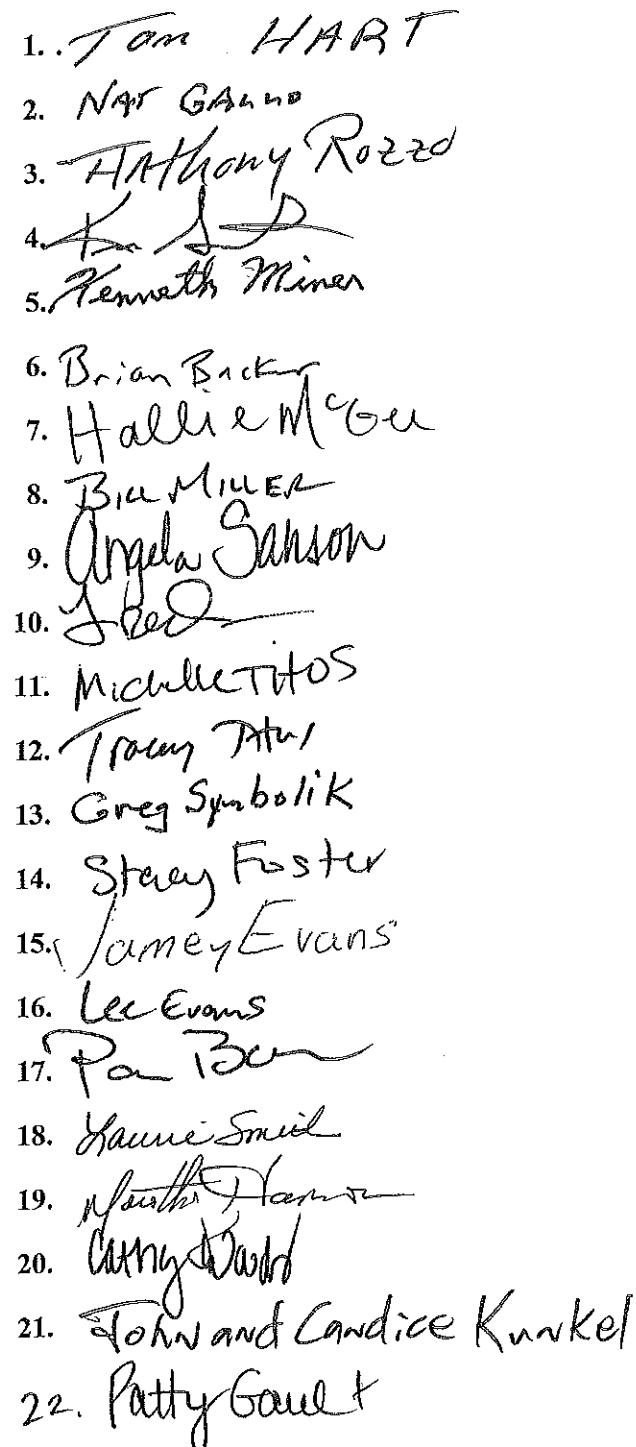 1. Tom HART
2. NAT GALLO
3. Anthony Rozzo
4.
5. Kenneth Miner
6. Brian Backer
7. Hallie McGee
8. BILL MILLER
9. Angela Sanson
10.
11. Michelle TITOS
12. Tracey
13. Greg Symbolik
14. Stacey Foster
15. Jamey Evans
16. Lee Evans
17. Pam
18. Laurie Smith
19. Martha
20. Cathy
21. John and Candice Kunkel
22. Patty Gault